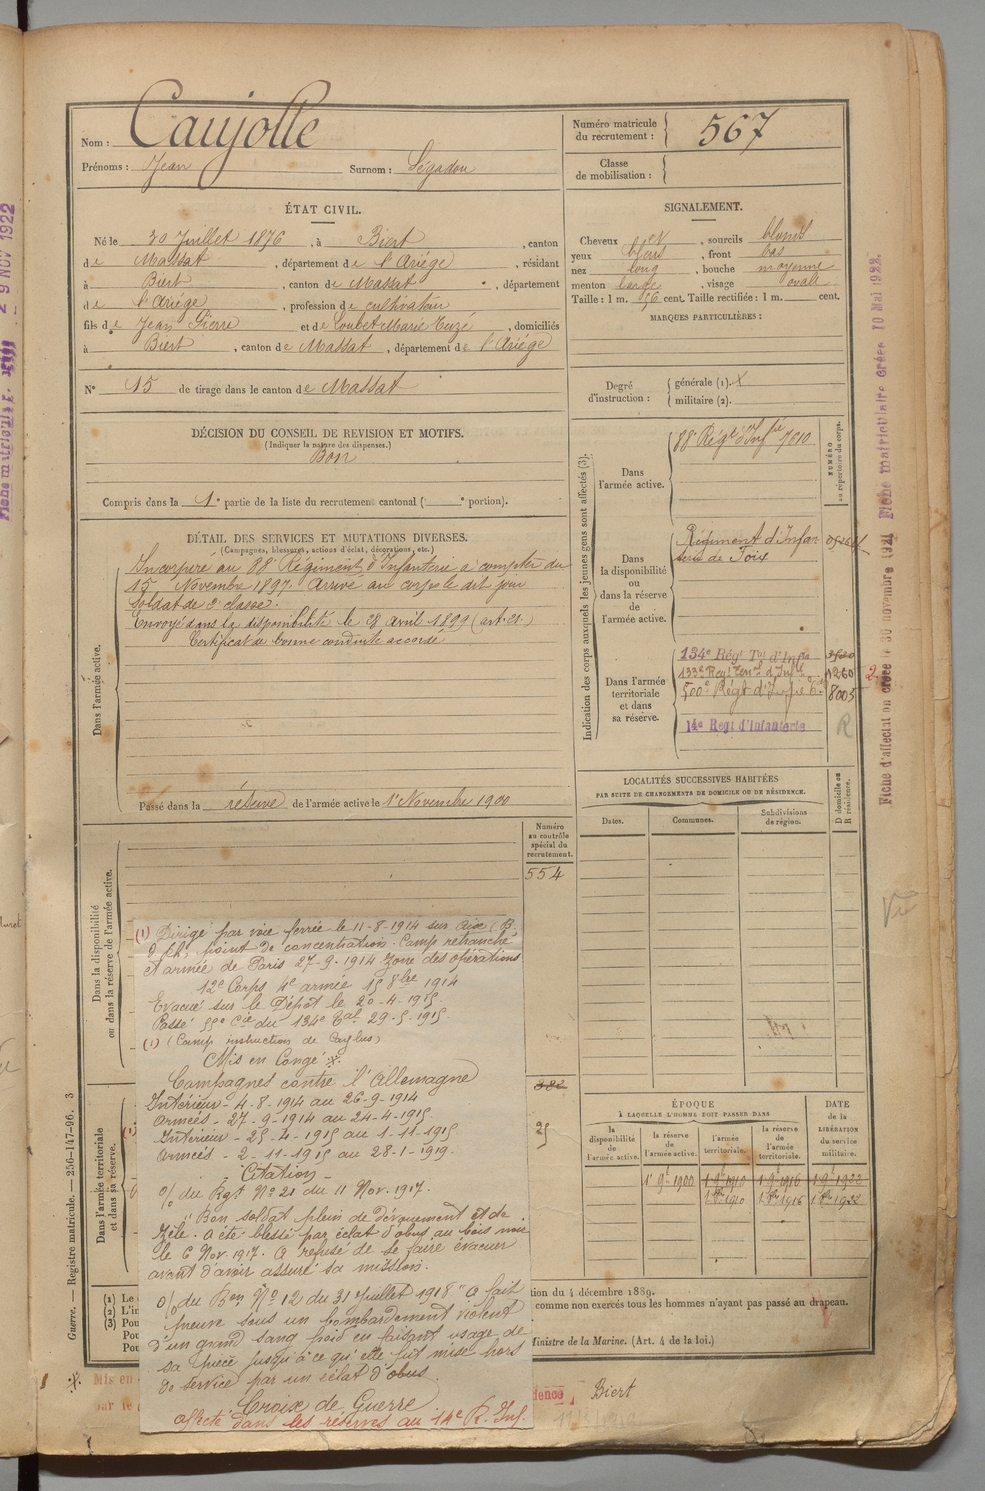 Nom : Caujolle
Prénoms : Jean Surnom : Ségadou
Numéro matricule du recrutement : 567
Classe de mobilisation :
ÉTAT CIVIL.
Né le 30 Juillet 1876, à Biert, canton
de Massat, département de l'Ariège, résidant
à Biert, canton de Massat, département
de l'Ariège, profession de cultivateur
fils de Jean Pierre et de Loubet Marie Tuzé, domiciliés
à Biert, canton de Massat, département de l'Ariège
N° 15 de tirage dans le canton de Massat
SIGNALEMENT.
Cheveux , sourcils blonds
yeux bleus, front bas
nez long, bouche moyenne
menton large, visage ovale
Taille : 1 m. 56 cent. Taille rectifiée : 1 m. cent.
MARQUES PARTICULIÈRES :
Degré d'instruction : générale (1). X
militaire (2).
DÉCISION DU CONSEIL DE REVISION ET MOTIFS.
(Indiquer la nature des dispenses.)
Bon
Compris dans la 1e partie de la liste du recrutement cantonal ( e portion).
DÉTAIL DES SERVICES ET MUTATIONS DIVERSES.
(Campagnes, blessures, actions d'éclat, décorations, etc.)
Dans l'armée active.
Incorporé au 88e Régiment d'Infanterie à compter du
15 Novembre 1897. Arrivé au corps le dit jour
soldat de 2e classe.
Envoyé dans la disponibilité le 28 avril 1899 (art. 21.)
Certificat de bonne conduite accordé
Passé dans la réserve de l'armée active le 1er Novembre 1900
Indication des corps auxquels les jeunes gens sont affectés (3).
NUMÉRO au répertoire du corps.
Dans l'armée active.
88e Régt d'Infrie 7010
Dans la disponibilité ou dans la réserve de l'armée active.
Régiment d'Infan
terie de Foix
Dans l'armée territoriale et dans sa réserve.
134e Régt Tal d'Infie
133e Regt Terral d'Infie 1260
500e Régt d'Infie 8005
14e Regt d'Infanterie R
LOCALITÉS SUCCESSIVES HABITÉES
PAR SUITE DE CHANGEMENTS DE DOMICILE OU DE RÉSIDENCE.
Dates. Communes. Subdivisions de région. D domicile ou R résidence.
Numéro au contrôle spécial du recrutement.
554
382
25
Dans la disponibilité ou dans la réserve de l'armée active.
Dans l'armée territoriale et dans sa réserve.
(1) Dirigé par voie ferrée le 11-8-1914 sur Aix (B.
point de concentration. Camp retranché
et armée de Paris 27-9-1914 zone des opérations
12e Corps 4e armée 15 8bre 1914
Evacué sur le Dépôt le 20-4-1915.
Passé 55e Cie du 134e Tal. 29-5-1915.
(1) (Camp instruction de Caylus)
Mis en Congé
Campagnes contre l'Allemagne
Intérieur - 4-8-1914 au 26-9-1914
Armées - 27-9-1914 au 24-4-1915.
Intérieur - 25-4-1915 au 1-11-1915
Armées - 2-11-1915 au 28-1-1919.
- Citation -
O/ du Rgt N° 21 du 11 Nov. 1917.
"Bon soldat plein de dévouement et de
zèle. A été blessé par éclat d'obus au bois noir
le 6 Nov. 1917. A refusé de se faire évacuer
avant d'avoir assuré sa mission.
O/ du Bon N° 12 du 31 Juillet 1918 "A fait
preuve sous un bombardement violent
d'un grand sang froid en faisant usage de
sa pièce jusqu'à ce qu'elle fut mise hors
de service par un éclat d'obus.
Croix de Guerre
affecté dans les réserves au 14e R. Inf.
ÉPOQUE
À LAQUELLE L'HOMME DOIT PASSER DANS
la disponibilité de l'armée active. la réserve de l'armée active. l'armée territoriale. la réserve de l'armée territoriale.
DATE de la LIBÉRATION du service militaire.
1er 9bre 1900 1er 9bre 1910 1er 9bre 1916 1er 9bre 1922
1er 8bre 1910 1er 8bre 1916 1er 8bre 1922
(1) Le
(2) L'in
(3) Pou
Pou
Pou
tion du 4 décembre 1889.
comme non exercés tous les hommes n'ayant pas passé au drapeau.
Ministre de la Marine. (Art. 4 de la loi.)
Mis en
par le
dence Biert
Guerre. — Registre matricule. — 256-147-96. 3
Fiche d'affectation créée le 30 novembre 1921 Fiche matriculaire créée 10 Mai 1922.
29 NOV 1922